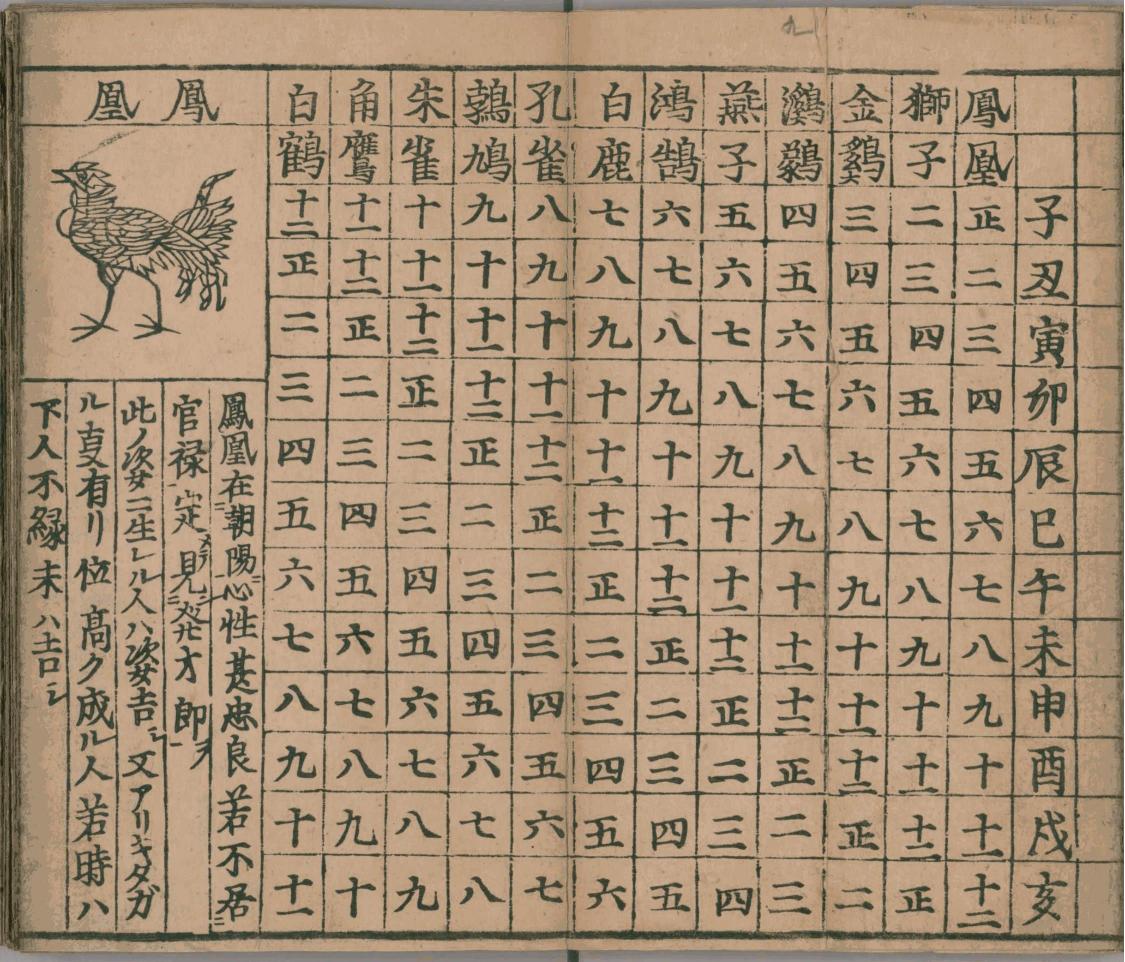 九
子丑寅卯辰巳午未申酉戌亥
鳳凰正二三四五六七八九十十一十二
獅子二三四五六七八九十十一十二正
金鷄三四五六七八九十十一十二正二
鸂鷘四五六七八九十十一十二正二三
燕子五六七八九十十一十二正二三四
鴻鵠六七八九十十一十二正二三四五
白鹿七八九十十一十二正二三四五六
孔雀八九十十一十二正二三四五六七
鵓鳩九十十一十二正二三四五六七八
朱雀十十一十二正二三四五六七八九
角鷹十一十二正二三四五六七八九十
白鶴十二正二三四五六七八九十十一
鳳凰
鳳凰在朝陽ニ心性甚忠良若不居ニ
官禄定メテ見ニ発才郎ヲ
此ノ姿ニ生レル人ハ姿吉シ又アリキタガ
ル事有リ位高ク成ル人若時ハ
下人不縁末ハ吉シ